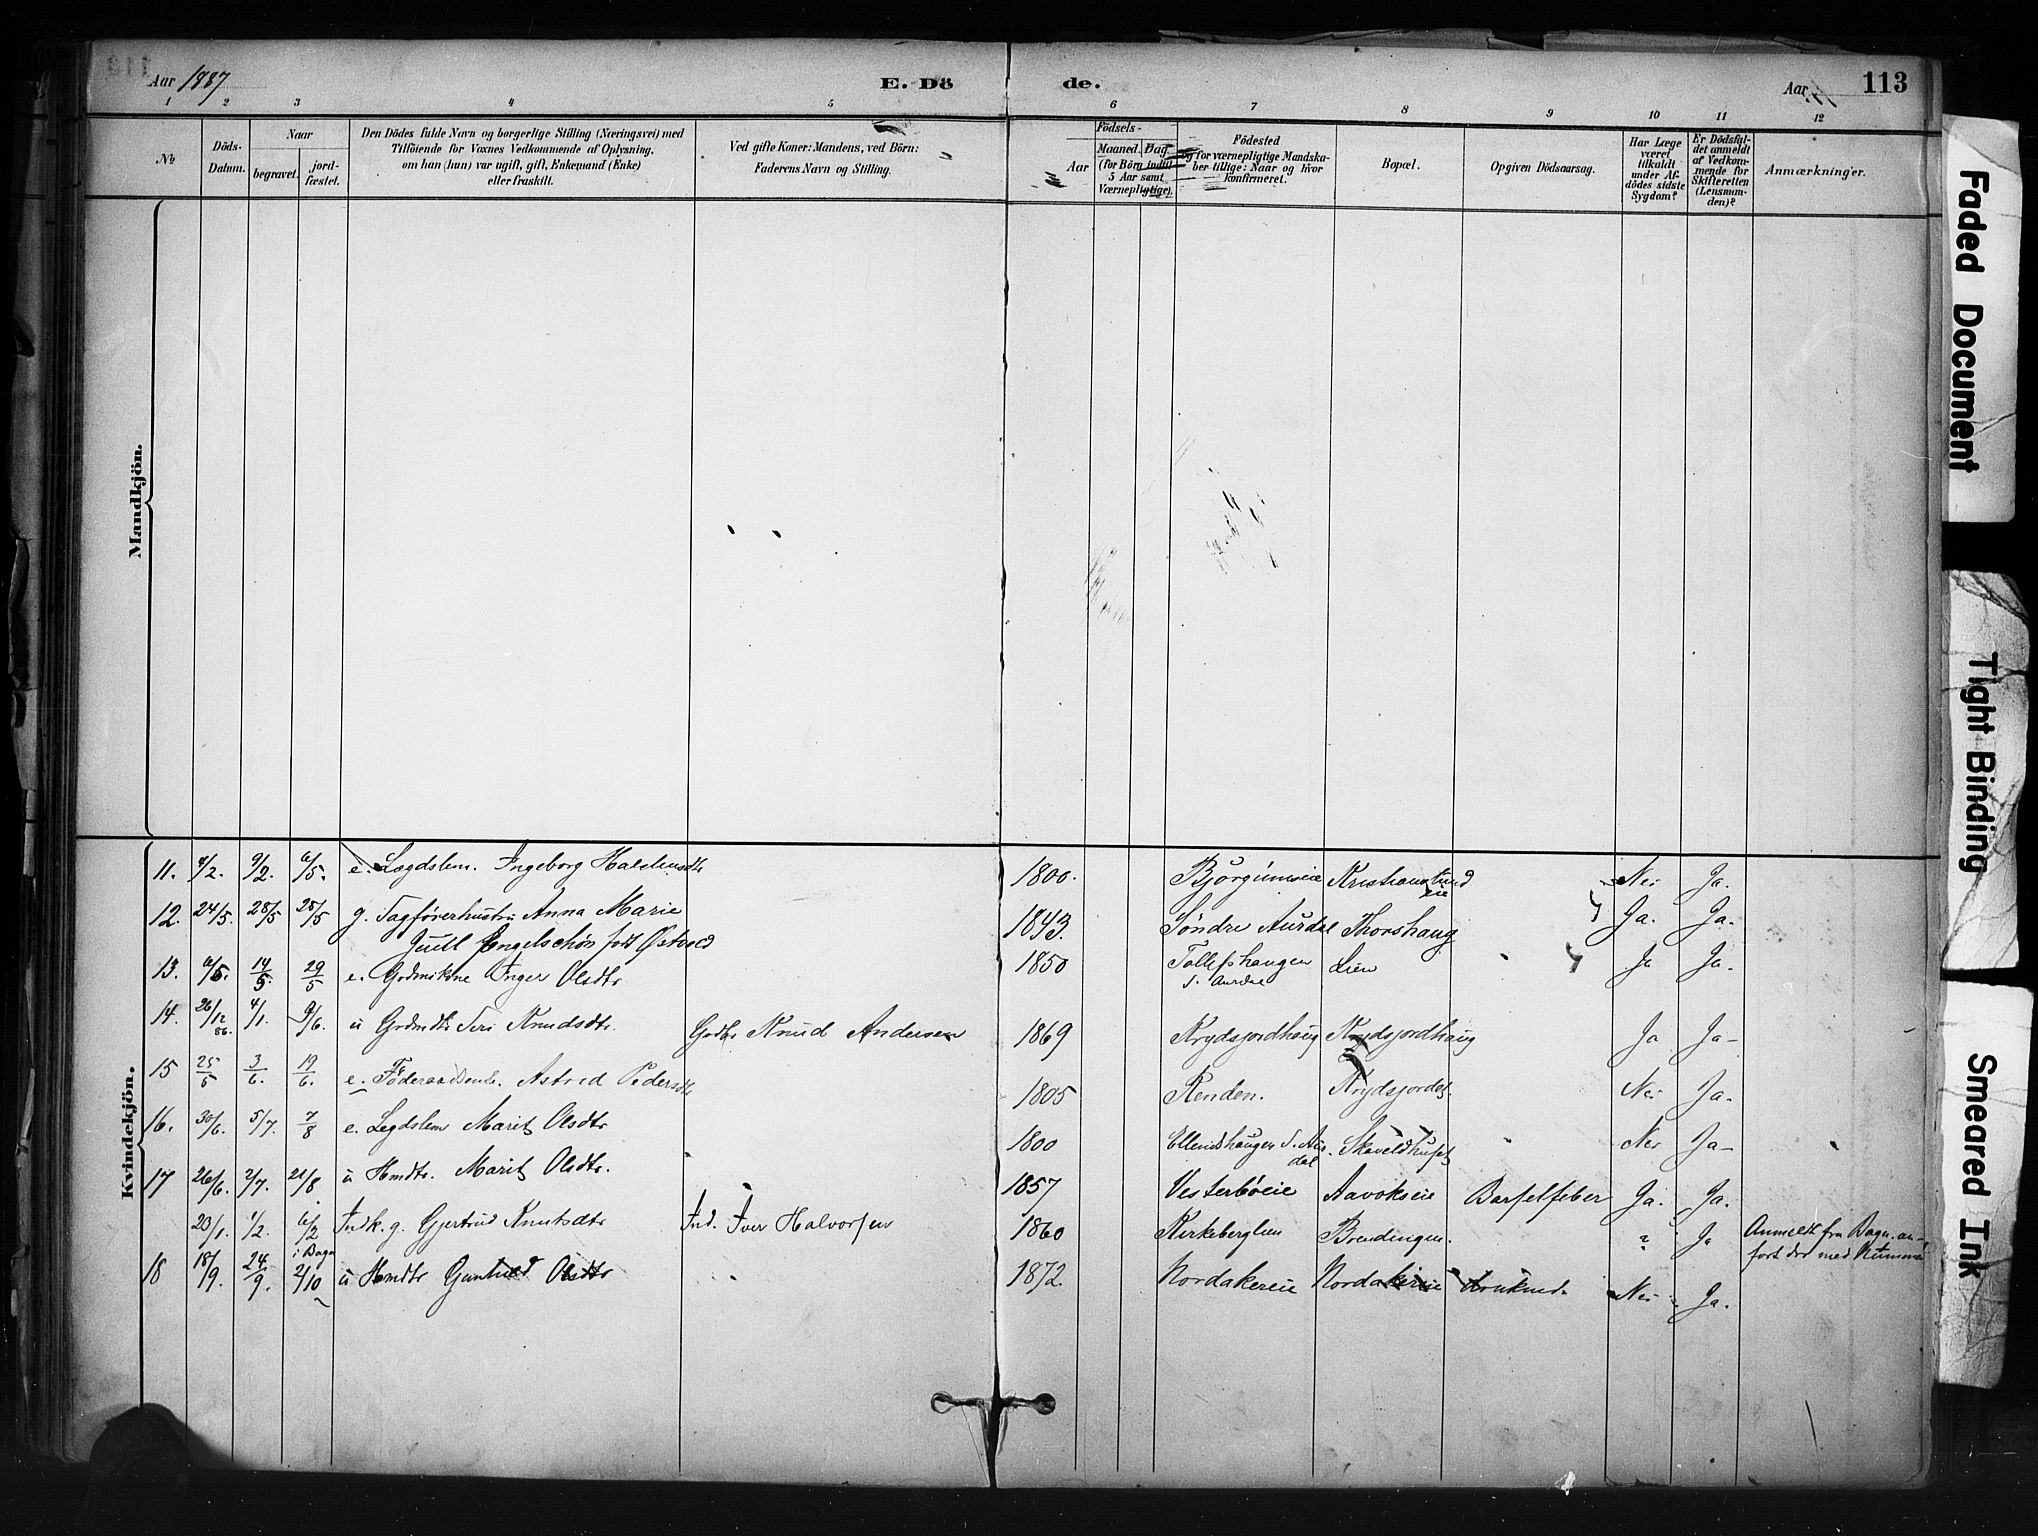 Aar 1887
E. Dö de.
Aar
113
1 2 3 4 5 6 7 8 9 10 11 12
No
Döds-Datum.
Naar
begravet.
jord-fæstet.
Den Dödes fulde Navn og borgerlige Stilling (Næringsvei) med
Tilföiende for Voxnes Vedkommende af Oplysning,
om han (hun) var ugift, gift, Enkemand (Enke)
eller fraskilt.
Ved gifte Koner: Mandens, ved Börn:
Faderens Navn og Stilling.
Födsels-
Aar
Maaned. Dag.
(for Börn indtil
5 Aar samt
Værnepligtige).
Födested
og for værnepligtige Mandska-
ber tillige: Naar og hvor
konfirmeret.
Bopæl.
Opgiven Dödsaarsag.
Har Læge
været
tilkaldt
under Af-
dödes sidste
Sygdom?
Er Dödsfal-
det anmeldt
af Vedkom-
mende for
Skifteretten
(Lensman-
den)?
Anmærkninger.
Mandkjön.
Kvindekjön.
11. 4/2. 9/2. e. Lægdslem. Ingeborg 1800. Nei Ja.
12. 24/5. 28/5 28/5 g. Sagførerhustru Anna Marie 1843. Søndre Aurdal Thorshaug Ja. Ja.
Juell Engelschøn født Østvold
13. 14/5. 29/5 e. Inger Olsdtr 1850 Lien Ja Ja.
S. Aurdal
14. 26/12 86. 4/1. u Knudsdtr. Knud Andersen 1869 Krydsjordhaug Krydsjordhaug Ja Ja
15 25/5 3/6. 19/6. e. Astrid Pedersdtr 1805 Renden. Krydsjordet. Nei Ja.
16. 30/6. 5/7. 7/8 e. Legdslem Marit Olsdtr 1800 Ellendshaugen S. Aurdal Nei Ja
17 26/6. 2/7. 21/8 u Hmdtr. Marit Olsdtr. 1857 Vesterbøeie Aavokseie Barselfeber Ja. Ja.
23/1. 1/2. 6/2 Indk. g. Gjertrud Knutsdtr Ind. Iver Halvorsen 1860 Kirkeberglien Brendingen. ? Ja Anmeldt fra Bagn.
i Bagn
18 18/9. 24/9. 2/10 u Hmdtr Gunhild Olsdtr 1872. Nordakereie Nordakereie Nei Ja.
Faded Document
Tight Binding
Smeared Ink